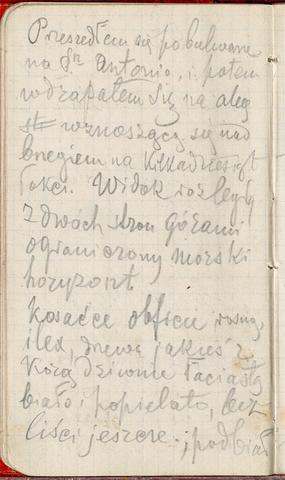 Przeszedłem się po bulwarze
na Sn Antonio, i potem
wdrapałem się na aleę
wznoszącą się nad
bregiem na kilkadziesiąt
łokci. Widok rozległy
z dwóch stron górami
ograniczony morski
horyzont
Kosaćce obficie rosną,
ilex, drzewa jakieś z
korą dziwnie łaciastą
biało i popielato, bez
liści jeszcze; podbiał